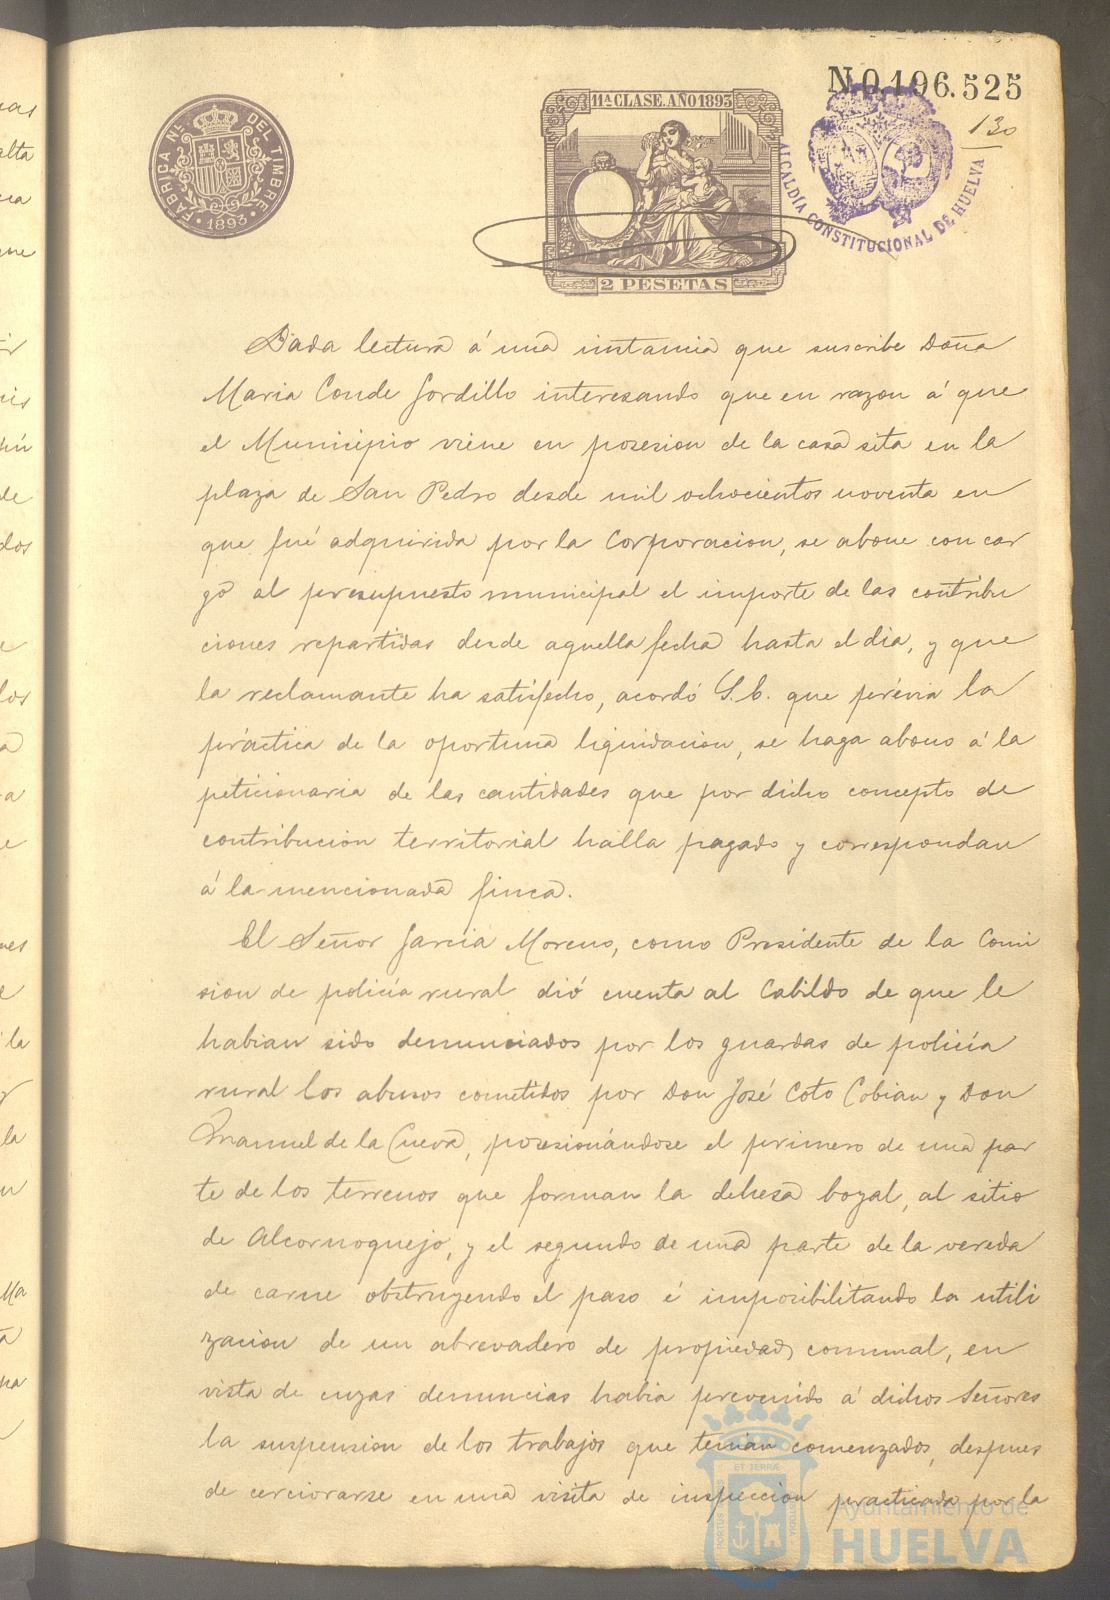 N.0.196.525
130
FABRICA NAL. DEL TIMBRE
1893
11ª CLASE. AÑO 1893
2 PESETAS
ALCALDÍA CONSTITUCIONAL DE HUELVA
Dada lectura á una instancia que suscribe Doña
Maria Conde Gordillo interesando que en razon á que
el Municipio viene en posesion de la casa sita en la
plaza de San Pedro desde mil ochocientos noventa en
que fué adquirida por la Corporacion, se abone con car
go al presupuesto municipal el importe de las contribu
ciones repartidas desde aquella fecha hasta el dia, y que
la reclamante ha satisfecho, acordó S.E. que prévia la
práctica de la oportuna liquidacion, se haga abono á la
peticionaria de las cantidades que por dicho concepto de
contribucion territorial halla pagado y correspondan
á la mencionada finca.
El Señor Garcia Moreno, como Presidente de la Comi
sion de policía rural dió cuenta al Cabildo de que le
habian sido denunciados por los guardas de policía
rural los abusos cometidos por Don José Coto Cobian y Don
Manuel de la Cueva, posesionándose el primero de una par
te de los terrenos que forman la dehesa boyal, al sitio
de Alcornoquejo, y el segundo de una parte de la vereda
de carne obstruyendo el paso é imposibilitando la utili
zacion de un abrevadero de propiedad comunal, en
vista de cuyas denuncias habia prevenido á dichos Señores
la suspension de los trabajos que tenian comenzados, despues
de cerciorarse en una visita de inspeccion practicada por la
Ayuntamiento de
HUELVA